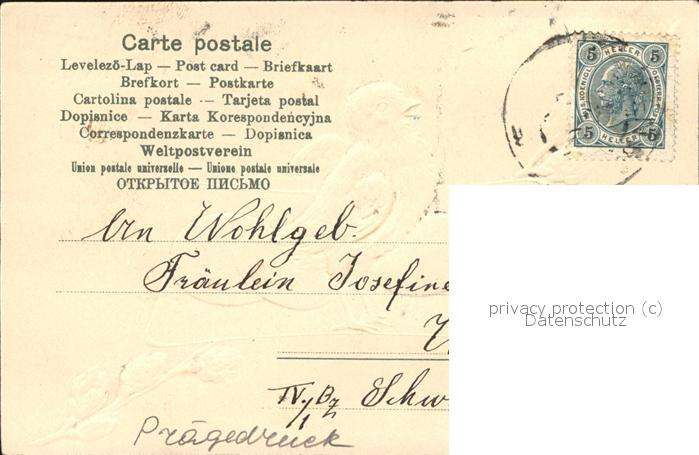 Carte postale
Levelező-Lap — Post card — Briefkaart
Brefkort — Postkarte
Cartolina postale — Tarjeta postal
Dopisnice — Karta Korespondencyjna
Correspondenzkarte — Dopisnica
Weltpostverein
Union postale universelle — Unione postale universale
ОТКРЫТОЕ ПИСЬМО
5 HELLER 5
5 HELLER 5
An Wohlgeb.
Fräulein Josefine
privacy protection (c)
Datenschutz
IV/1 Bz Schw
Prägedruck